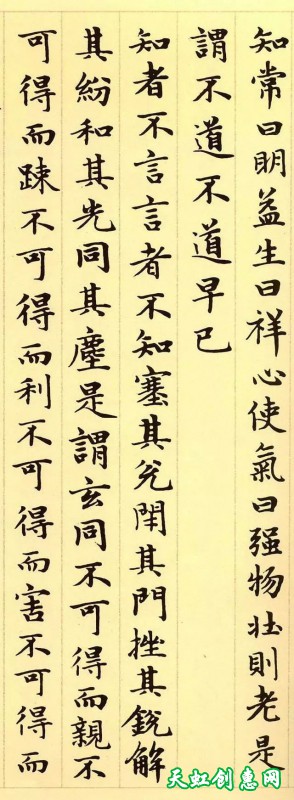 知常曰明益生曰祥心使氣曰强物壯則老是
謂不道不道早已
知者不言言者不知塞其兊閇其門挫其銳解
其紛和其光同其塵是謂玄同不可得而親不
可得而踈不可得而利不可得而害不可得而
天虹创意网